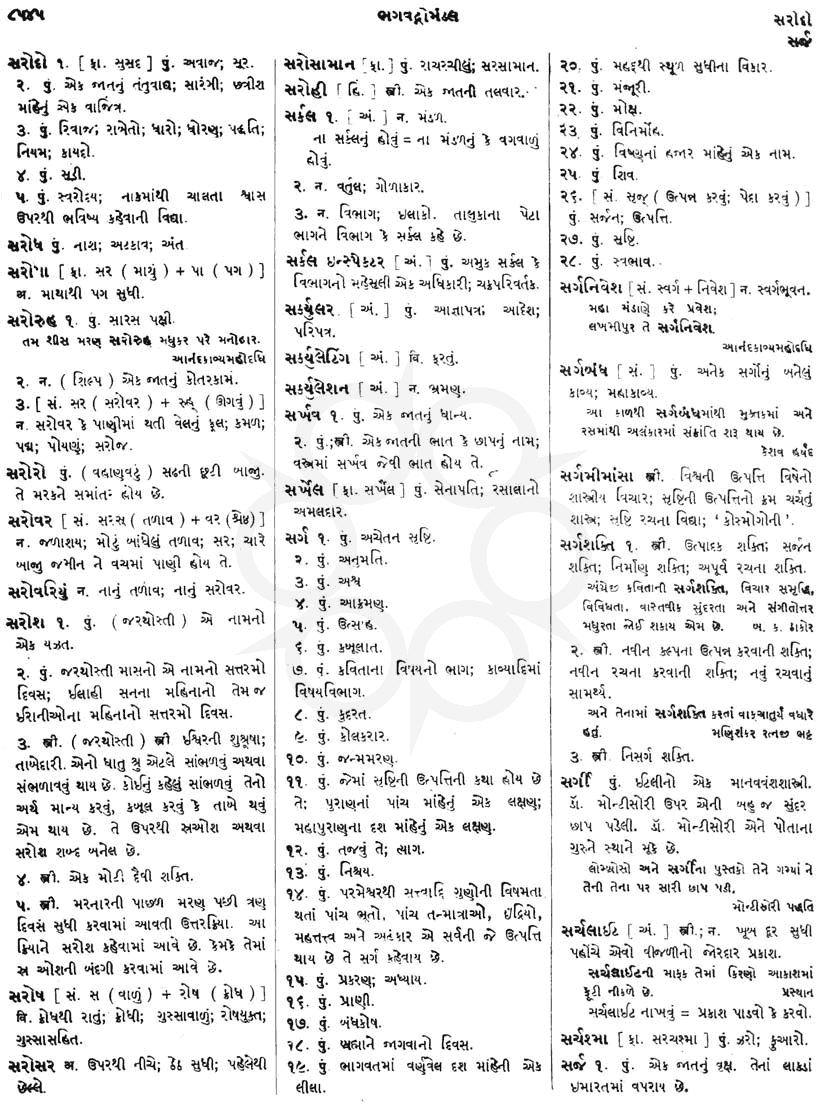 ૮૫૪૫
ભગવદ્ગોમંડલ
સરોદો
સર્જ
સરોદો ૧. [ ફા. સુસદ ] પું. અવાજ; સૂર.
૨. પું. એક જાતનું તંતુવાદ્ય; સારંગી; છત્રીશ
માંહેનું એક વાજિંત્ર.
૩. પું. રિવાજ; રાબેતો; ધારો; ધોરણ; પદ્ધતિ;
નિયમ; કાયદો.
૪. પું. સૂડી.
૫. પું. સ્વરોદય; નાકમાંથી ચાલતા શ્વાસ
ઉપરથી ભવિષ્ય કહેવાની વિદ્યા.
સરોધ પું. નાશ; અટકાવ; અંત.
સરોપા [ ફા. સર ( માથું ) + પા ( પગ ) ]
અ. માથાથી પગ સુધી.
સરોરુહ ૧. પું. સારસ પક્ષી.
તમ શીસ મરણ સરોરુહ મધુકર પરે મનોહાર.
આનંદકાવ્યમહોદધિ
૨. ન. ( શિલ્પ ) એક જાતનું કોતરકામ.
૩. [ સં. સર ( સરોવર ) + રુહ્ ( ઊગવું ) ]
ન. સરોવર કે પાણીમાં થતી વેલનું ફૂલ; કમળ;
પદ્મ; પોયણું; સરોજ.
સરોરો પું. ( વહાણવટું ) સઢની છૂટી બાજી.
તે મરકને સમાંતર હોય છે.
સરોવર [ સં. સરસ્ ( તળાવ ) + વર (શ્રેષ્ઠ) ]
ન. જળાશય; મોટું બાંધેલું તળાવ; સર; ચારે
બાજી જમીન ને વચમાં પાણી હોય તે.
સરોવરિયું ન. નાનું તળાવ; નાનું સરોવર.
સરોશ ૧. પું. ( જરથોસ્તી ) એ નામનો
એક યઝત.
૨. પું. જરથોસ્તી માસનો એ નામનો સત્તરમો
દિવસ; ઈલાહી સનના મહિનાનો તેમ જ
ઈરાનીઓના મહિનાનો સત્તરમો દિવસ.
૩. સ્ત્રી. ( જરથોસ્તી ) સ્ત્રી ઈશ્વરની શુશ્રૂષા;
તાબેદારી. એનો ધાતુ શ્રુ એટલે સાંભળવું અથવા
સંભળાવવું થાય છે. કોઈનું કહેલું સાંભળવું તેનો
અર્થ માન્ય કરવું, કબૂલ કરવું કે તાબે થવું
એમ થાય છે. તે ઉપરથી સ્રઓશ અથવા
સરોશ શબ્દ બનેલ છે.
૪. સ્ત્રી. એક મોટી દૈવી શક્તિ.
૫. સ્ત્રી. મરનારની પાછળ મરણ પછી ત્રણ
દિવસ સુધી કરવામાં આવતી ઉત્તરક્રિયા. આ
ક્રિયાને સરોશ કહેવામાં આવે છે. કેમકે તેમાં
સ્ર ઓશની બંદગી કરવામાં આવે છે.
સરોષ [ સં. સ ( વાળું ) + રોષ ( ક્રોધ ) ]
વિ. ક્રોધથી રાતું; ક્રોધી; ગુસ્સાવાળું; રોષયુક્ત;
ગુસ્સાસહિત.
સરોસર અ. ઉપરથી નીચે; ઠેઠ સુધી; પહેલેથી
છેલ્લે.
સરોસામાન [ ફા. ] પું. રાચરચીલું; સરસામાન.
સરોહી [ હિં. ] સ્ત્રી. એક જાતની તલવાર.
સર્કલ ૧. [ અં. ] ન. મંડળ.
ના સર્કલનું હોવું = ના મંડળનું કે વગવાળું
હોવું.
૨. ન. વર્તુલ; ગોળાકાર.
૩. ન. વિભાગ; ઇલાકો. તાલુકાના પેટા
ભાગને વિભાગ કે સર્કલ કહે છે.
સર્કલ ઇન્સ્પેક્ટર [ અં. ] પું. અમુક સર્કલ કે
વિભાગનો મહેસૂલી એક અધિકારી; ચક્રપરિવર્તક.
સર્ક્યુલર [ અં. ] પું. આજ્ઞાપત્ર; આદેશ;
પરિપત્ર.
સર્ક્યુલેટિંગ [ અં. ] વિ. ફરતું.
સર્ક્યુલેશન [ અં. ] ન. ભ્રમણ.
સર્ખવ ૧. પું. એક જાતનું ધાન્ય.
૨. પું.;સ્ત્રી. એક જાતની ભાત કે છાપનું નામ;
વસ્ત્રમાં સર્ખવ જેવી ભાત હોય તે.
સર્ખેલ [ ફા. સર્ખેલ ] પું. સેનાપતિ; રસાલાનો
અમલદાર.
સર્ગ ૧. પું. અચેતન સૃષ્ટિ.
૨. પું. અનુમતિ.
૩. પું. અશ્વ.
૪. પું. આક્રમણ.
૫. પું. ઉત્સાહ.
૬. પું. કબૂલાત.
૭. પું. કવિતાના વિષયનો ભાગ; કાવ્યાદિમાં
વિષયવિભાગ.
૮. પું. કુદરત.
૯. પું. કોલકરાર.
૧૦. પું. જન્મમરણ.
૧૧. પું. જેમાં સૃષ્ટિની ઉત્પત્તિની કથા હોય છે
તે; પુરાણનાં પાંચ માંહેનું એક લક્ષણ;
મહાપુરાણના દશ માંહેનું એક લક્ષણ.
૧૨. પું. તજવું તે; ત્યાગ.
૧૩. પું. નિશ્ચય.
૧૪. પું. પરમેશ્વરથી સત્ત્વાદિ ગુણોની વિષમતા
થતાં પાંચ ભૂતો, પાંચ તન્માત્રાઓ, ઇંદ્રિયો,
મહત્તત્ત્વ અને અહંકાર એ સર્વની જે ઉત્પત્તિ
થાય છે તે સર્ગ કહેવાય છે.
૧૫. પું. પ્રકરણ; અધ્યાય.
૧૬. પું. પ્રાણી.
૧૭. પું. બંધકોષ.
૧૮. પું. બ્રહ્માને જાગવાનો દિવસ.
૧૯. પું. ભાગવતમાં વર્ણવેલ દશ માંહેની એક
લીલા.
૨૦. પું. મહદ્થી સ્થૂળ સુધીના વિકાર.
૨૧. પું. મંજૂરી.
૨૨. પું. મોક્ષ.
૨૩. પું. વિનિર્મોહ.
૨૪. પું. વિષ્ણુનાં હજાર માંહેનું એક નામ.
૨૫. પું શિવ.
૨૬. [ સં. સૃજ્ ( ઉત્પન્ન કરવું; પેદા કરવું ) ]
પું. સર્જન; ઉત્પત્તિ.
૨૭. પું. સૃષ્ટિ.
૨૮. પું. સ્વભાવ.
સર્ગનિવેશ [ સં. સ્વર્ગ + નિવેશ ] ન. સ્વર્ગભૂવન.
મહા મંડાણે કરે પ્રવેશ;
લખમીપુર તે સર્ગનિવેશ.
આનંદકાવ્યમહોદધિ
સર્ગબંધ [ સં. ] પું. અનેક સર્ગોનું બનેલું
કાવ્ય; મહાકાવ્ય.
આ કાળથી સર્ગબંધમાંથી મુક્તકમાં અને
રસમાંથી અલંકારમાં સંક્રાંતિ શરૂ થાય છે.
કેશવ હર્ષદ
સર્ગમીમાંસા સ્ત્રી. વિશ્વની ઉત્પત્તિ વિષેનો
શાસ્ત્રીય વિચાર; સૃષ્ટિની ઉત્પત્તિનો ક્રમ ચર્ચતું
શાસ્ત્ર; સૃષ્ટિ રચના વિદ્યા; ‘ કોસ્મોગોની ’.
સર્ગશક્તિ ૧. સ્ત્રી. ઉત્પાદક શક્તિ; સર્જન
શક્તિ; નિર્માણ શક્તિ; અપૂર્વ રચના શક્તિ.
અંગ્રેજી કવિતાની સર્ગશક્તિ, વિચાર સમૃદ્ધિ,
વિવિધતા, વાસ્તવીક સુંદરતા અને સંગીતોત્તર
મધુરતા જોઈ શકાય એમ છે. બ. ક. ઠાકોર
૨. સ્ત્રી. નવીન કલ્પના ઉત્પન્ન કરવાની શક્તિ;
નવીન રચના કરવાની શક્તિ; નવું રચવાનું
સામર્થ્ય.
અને તેનામાં સર્ગશક્તિ કરતાં વાક્ચાતુર્ય વધારે
હતું. મણિશંકર રત્નજી ભટ્ટ
૩. સ્ત્રી. નિસર્ગ શક્તિ.
સર્ગી પું. ઇટલીનો એક માનવવંશશાસ્ત્રી.
ડૉ. મોન્ટીસોરી ઉપર એની બહુ જ સુંદર
છાપ પડેલી. ડૉ. મોન્ટીસોરી એને પોતાના
ગુરુને સ્થાને મૂકે છે.
લોમ્બ્રોસો અને સર્ગીના પુસ્તકો તેને ગમ્યાં ને
તેની તેના પર સારી છાપ પડી.
મોન્ટીસોરી પદ્ધતિ
સર્ચલાઈટ [ અં. ] સ્ત્રી.; ન. ખૂબ દૂર સુધી
પહોંચે એવો વીજળીનો જોરદાર પ્રકાશ.
સર્ચલાઈટની માફક તેમાં કિરણો આકાશમાં
ફૂટી નીકળે છે. પ્રસ્થાન
સર્ચલાઈટ નાખવું = પ્રકાશ પાડવો કે કરવો.
સર્ચશ્મા [ ફા. સરચશ્મા ] પું. ઝરો; ફુઆરો.
સર્જ ૧. પું. એક જાતનું વૃક્ષ. તેનાં લાકડાં
ઇમારતમાં વપરાય છે.